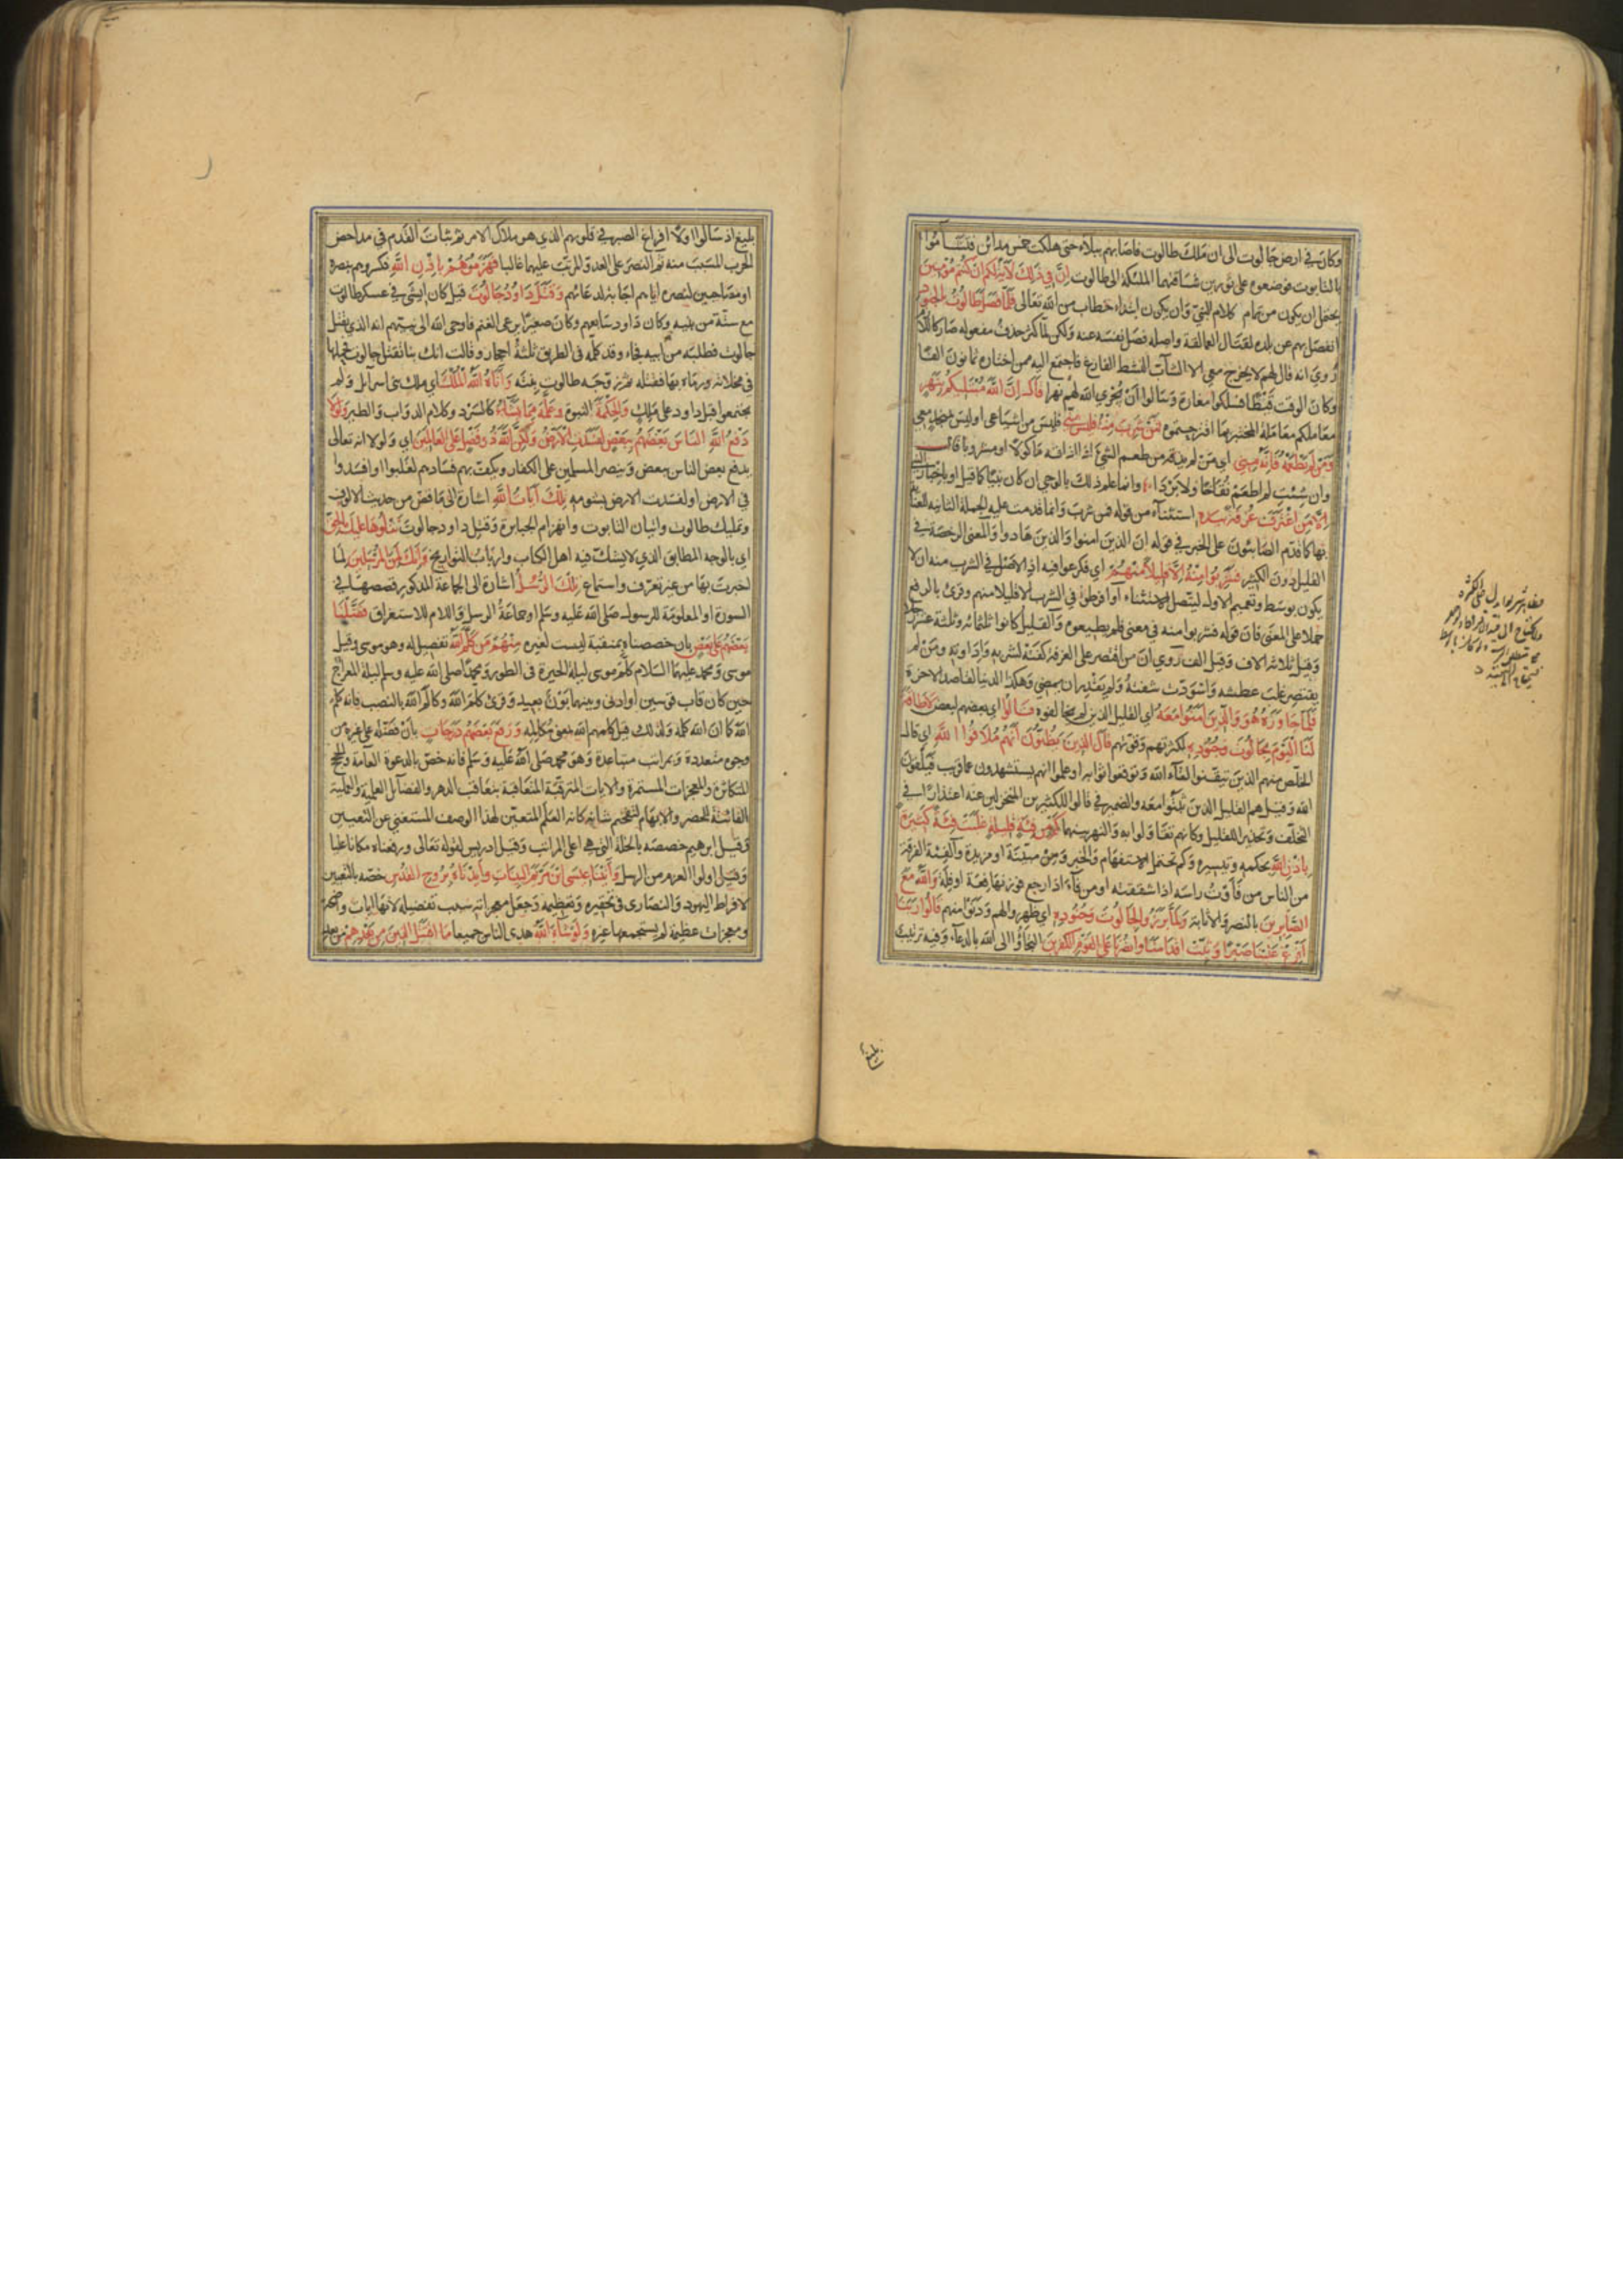 وكان في ارض جالوت الى ان ملك طالوت فاصابهم ببلاء حتى هلكت خمس مدائن فتشأموا
بالتابوت فوضعوه على ثورين فساقتهما الملئكة الى طالوت ان في ذلك لآية لكم ان كنتم مؤمنين
يحتمل ان يكون من تمام كلام النبي وان يكون ابتداء خطاب من الله تعالى فلما فصل طالوت بالجنود
انفصل بهم عن بلده لقتال العمالقة واصله فصل نفسه عنه ولكن لما كثر حذف مفعوله صار كاللازم
روي انه قال لهم لا يخرج معي الا الشاب النشيط الفارغ فاجتمع اليه ممن اختاره ثمانون الفا
وكان الوقت قيظا فسلكوا مفازة وسالوا ان يجري الله لهم نهرا قال ان الله مبتليكم بنهر
معاملكم معاملة المختبر بما اقترحتموه فمن شرب منه فليس مني فليس من اشياعي او ليس بمتحد معي
ومن لم يطعمه فانه مني اي من لم يذقه من طعم الشيء اذا ذاقه مأكولا او مشروبا قال
وان شئت لم اطعم نقاخا ولا بردا وانما علم ذلك بالوحي ان كان نبيا كما قيل او باخبار النبي
الا من اغترف غرفة بيده استثناء من قوله فمن شرب وانما قدمت عليه الجملة الثانية للعناية
بها كما قدم الصابئون على الخبر في قوله ان الذين امنوا والذين هادوا والمعنى الرخصة في
القليل دون الكثير فشربوا منه الا قليلا منهم اي فكرعوا فيه اذ الاصل في الشرب منه ان لا
يكون بوسط وتعميم الاول ليتصل الاستثناء او افرطوا في الشرب الا قليلا منهم وقرئ بالرفع
حملا على المعنى فان قوله فشربوا منه في معنى فلم يطيعوه والقليل كانوا ثلثمائة وثلثة عشر رجلا
وقيل ثلاثة الاف وقيل الف روي ان من اقتصر على الغرفة كفته لشربه واداوته ومن لم
يقتصر غلب عطشه واسودت شفته ولم يقدر ان يمضي وهكذا الدنيا لقاصد الاخرة
فلما جاوزه هو والذين امنوا معه اي القليل الذين لم يخالفوه قالوا اي بعضهم لبعض لا طاقة
لنا اليوم بجالوت وجنوده لكثرتهم وقوتهم قال الذين يظنون انهم ملاقوا الله اي قال
الخلص منهم الذين تيقنوا لقاء الله وتوقعوا ثوابه او علموا انهم يستشهدون عما قريب فيلقون
الله وقيل هم القليل الذين ثبتوا معه والضمير في قالوا للكثير من المنخزلين عنه اعتذارا في
التخلف وتحذيرا للقليل وكانهم تقاولوا به والنهر بينهما كم من فئة قليلة غلبت فئة كثيرة
باذن الله بحكمه وتيسيره وكم تحتمل الاستفهام والخبر ومن مبينة او مزيدة والفئة الفرقة
من الناس من فأوت رأسه اذا شققته او من فاء اذا رجع فوزنها فعة او فلة والله مع
الصابرين بالنصر والاثابة ولما برزوا لجالوت وجنوده اي ظهروا لهم ودنوا منهم قالوا ربنا
افرغ علينا صبرا وثبت اقدامنا وانصرنا على القوم الكفرين التجاؤا الى الله بالدعاء وفيه ترتيب
بليغ
بليغ اذ سالوا اولا افراغ الصبر في قلوبهم الذي هو ملاك الامر ثم ثبات القدم في مداحض
الحرب المسبب منه ثم النصر على العدو المرتب عليهما غالبا فهزموهم باذن الله فكسروهم بنصره
او مصاحبين لنصره اياهم اجابة لدعائهم وقتل داود جالوت قيل كان ايشى في عسكر طالوت
مع ستة من بنيه وكان داود سابعهم وكان صغيرا يرعى الغنم فاوحى الله الى نبيهم انه الذي يقتل
جالوت فطلبه من ابيه فجاء وقد كلمه في الطريق ثلثة احجار وقالت انك بنا تقتل جالوت فحملها
في مخلاته ورماه بها فقتله ثم زوجه طالوت بنته واتاه الله الملك اي ملك بني اسرآئيل ولم
يجتمعوا قبل داود على ملك والحكمة النبوة وعلمه مما يشاء كالسرد وكلام الدواب والطير ولولا
دفع الله الناس بعضهم ببعض لفسدت الارض ولكن الله ذو فضل على العالمين اي ولولا انه تعالى
يدفع بعض الناس ببعض وينصر المسلمين على الكفار ويكف بهم فسادهم لغلبوا وافسدوا
في الارض او لفسدت الارض بشومهم تلك آيات الله اشارة الى ما قص من حديث الالوف
وتمليك طالوت واتيان التابوت وانهزام الجبابرة وقتل داود جالوت نتلوها عليك بالحق
اي بالوجه المطابق الذي لا يشك فيه اهل الكتاب وارباب التواريخ وانك لمن المرسلين لما
اخبرت بها من غير تعرف واستماع تلك الرسل اشارة الى الجماعة المذكور قصصها في
السورة او المعلومة للرسول صلى الله عليه وسلم او جماعة الرسل واللام للاستغراق فضلنا
بعضهم على بعض بان خصصناه بمنقبة ليست لغيره منهم من كلم الله تفصيل له وهو موسى وقيل
موسى ومحمد عليهما السلام كلم موسى ليلة الحيرة في الطور ومحمدا صلى الله عليه وسلم ليلة المعراج
حين كان قاب قوسين او ادنى وبينهما بون بعيد وقرئ كلم الله وكالم الله بالنصب فانه كلم
الله كما ان الله كلمه ولذلك قيل كليم الله بمعنى مكالمه ورفع بعضهم درجات بان فضله على غيره من
وجوه متعددة وبمراتب متباعدة وهو محمد صلى الله عليه وسلم فانه خص بالدعوة العامة والحجج
المتكاثرة والمعجزات المستمرة والايات المترقية المتعاقبة بتعاقب الدهر والفضائل العلمية والعملية
الفائتة للحصر والابهام لتفخيم شانه كانه العلم المتعين لهذا الوصف المستغني عن التعيين
وقيل ابرهيم خصصه بالخلة التي هي اعلى المراتب وقيل ادريس لقوله تعالى ورفعناه مكانا عليا
وقيل اولوا العزم من الرسل وآتينا عيسى ابن مريم البينات وايدناه بروح القدس خصه بالتعيين
لافراط اليهود والنصارى في تحقيره وتعظيمه وجعل معجزاته سبب تفضيله لانها ايات واضحة
ومعجزات عظيمة لم يستجمعها غيره ولو شاء الله هدى الناس جميعا ما اقتتل الذين من بعدهم من بعد